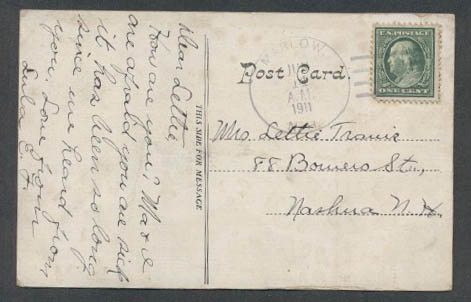 Dear Lettie,
How are you? Ma & I
are afraid you are sick
it has been so long
since we heard from
you. Love from
Lula E. F.
THIS SIDE FOR MESSAGE
Post Card.
MARLOW
A.M.
1911
U.S. POSTAGE
ONE CENT
Mrs. Lettie Travis
88 Bowers St.,
Nashua N.H.